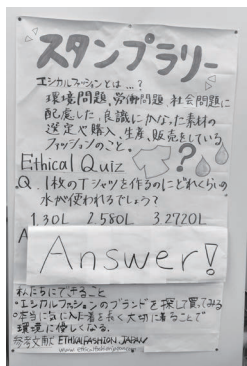 スタンプラリー
エシカルファッションとは...?
環境問題、労働問題、社会問題に
配慮した、良識にかなった素材の
選定や購入、生産、販売をしている
ファッションのこと。
Ethical Quiz
?
Q. 1枚のTシャツを作るのにどれくらいの
水が使われるでしょう?
1.30L 2.580L 3.2720L
A
Answer!
私たちにできること
・エシカルファッションのブランドを探して買ってみる
・本当に気に入った着を長く大切に着ることで
環境に優しくなる。
参考文献 ETHICALFASHION JAPAN